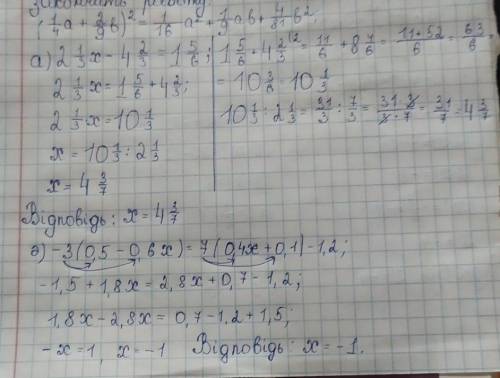 закончить работу.
(1/4 a + 2/9 b)² = 1/16 a² + 1/9 ab + 4/81 b².
а) 2 1/3 x - 4 2/3 = 1 5/6;
2 1/3 x = 1 5/6 + 4 2/3;
2 1/3 x = 10 1/3
x = 10 1/3 : 2 1/3
x = 4 3/7
1 5/6 + 4 2/3 = 11/6 + 8 7/6 = 11+52/6 = 63/6 =
= 10 3/6 = 10 1/3
10 1/3 : 2 1/3 = 31/3 : 7/3 = 31·3/3·7 = 31/7 = 4 3/7
Відповідь: x = 4 3/7
-3(0,5 - 0,6x) = 7(0,4x + 0,1) - 1,2;
-1,5 + 1,8x = 2,8x + 0,7 - 1,2;
1,8x - 2,8x = 0,7 - 1,2 + 1,5;
-x = 1, x = -1 Відповідь: x = -1.